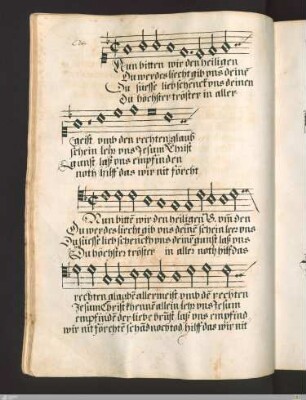 Nun bitten wir den heiligen
Du werdes liecht gib vns deinē
Du süesse lieb schenckh vns deinen
Du höchster tröster in aller
geist vmb den rechten glaub
schein lehr vns Jesum Christ
gunst laß vns empfinden
noth hilff das wir nit förcht
Nun bittē wir den heiligen G. vm den
Du werdes liecht gib vns deinē schein ler vns
Du süesse lieb schenckh vns deinē gunst laß vns
Du höchster tröster in aller noth hilff das
rechten glaubē allermeist vmb dē rechten
Jesum Christ khennē allein lehr vns Jesum
empfindē der liebe brust laß vns empfind
wir nit förchtē schād noch tod hilff das wir nit